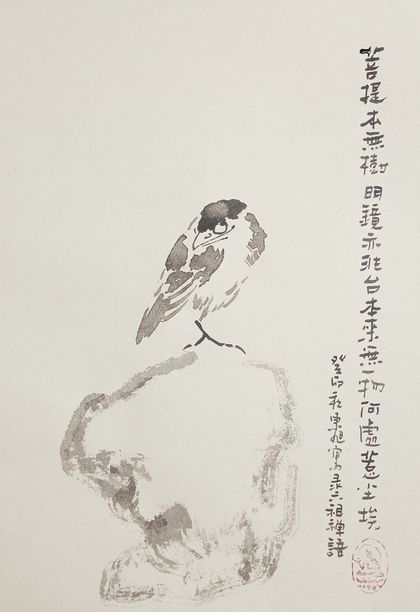 菩提本無樹明鏡亦非台本来無一物何處惹尘埃
癸卯秋東旭寫录六祖禪語